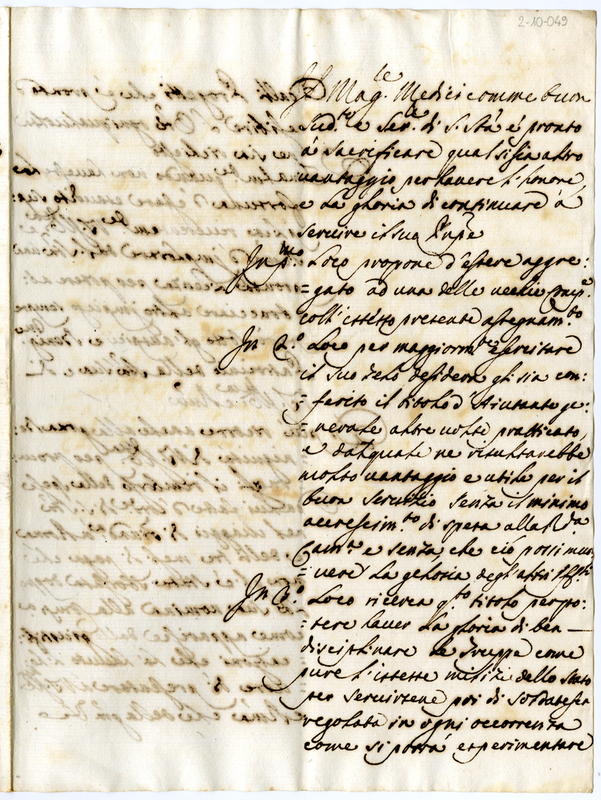 2-10-049
Il Mag.le Medici comme buon
Sud.to e Ser.e di S. Stà é pronto
á sacrificare qual sisia altro
vantaggio per havere l'honore,
e La gloria di continuare á
servire il suo
In p.mo Loco propone d'essere aggre:
=gato ad una delle vechie Comp.e
coll'istesso presente assegnam.to
In 2.o Loco per maggiorm.te essercitare
il suo zelo desidera gli sia con:
=ferito il titolo d'Aiutante ge:
=nerale altre volte pratticato,
e dalquale ne risultarebbe
molto vantaggio e utile per il
buon servitio senza il minimo
accrescim.to di spesa alla R.da
Cam.ra e senza, che ciò possi muo:
=vere La gelosia degl'altri Uff.li
In 3.o Loco ricerca q.to titolo per po:
=tere haver La gloria di ben
disciplinare Le Truppe come
pure l'istesse militie dello Stato
per servirsene poi di soldatesca
regolata in ogni occorrenza
come si potrà esperimentare